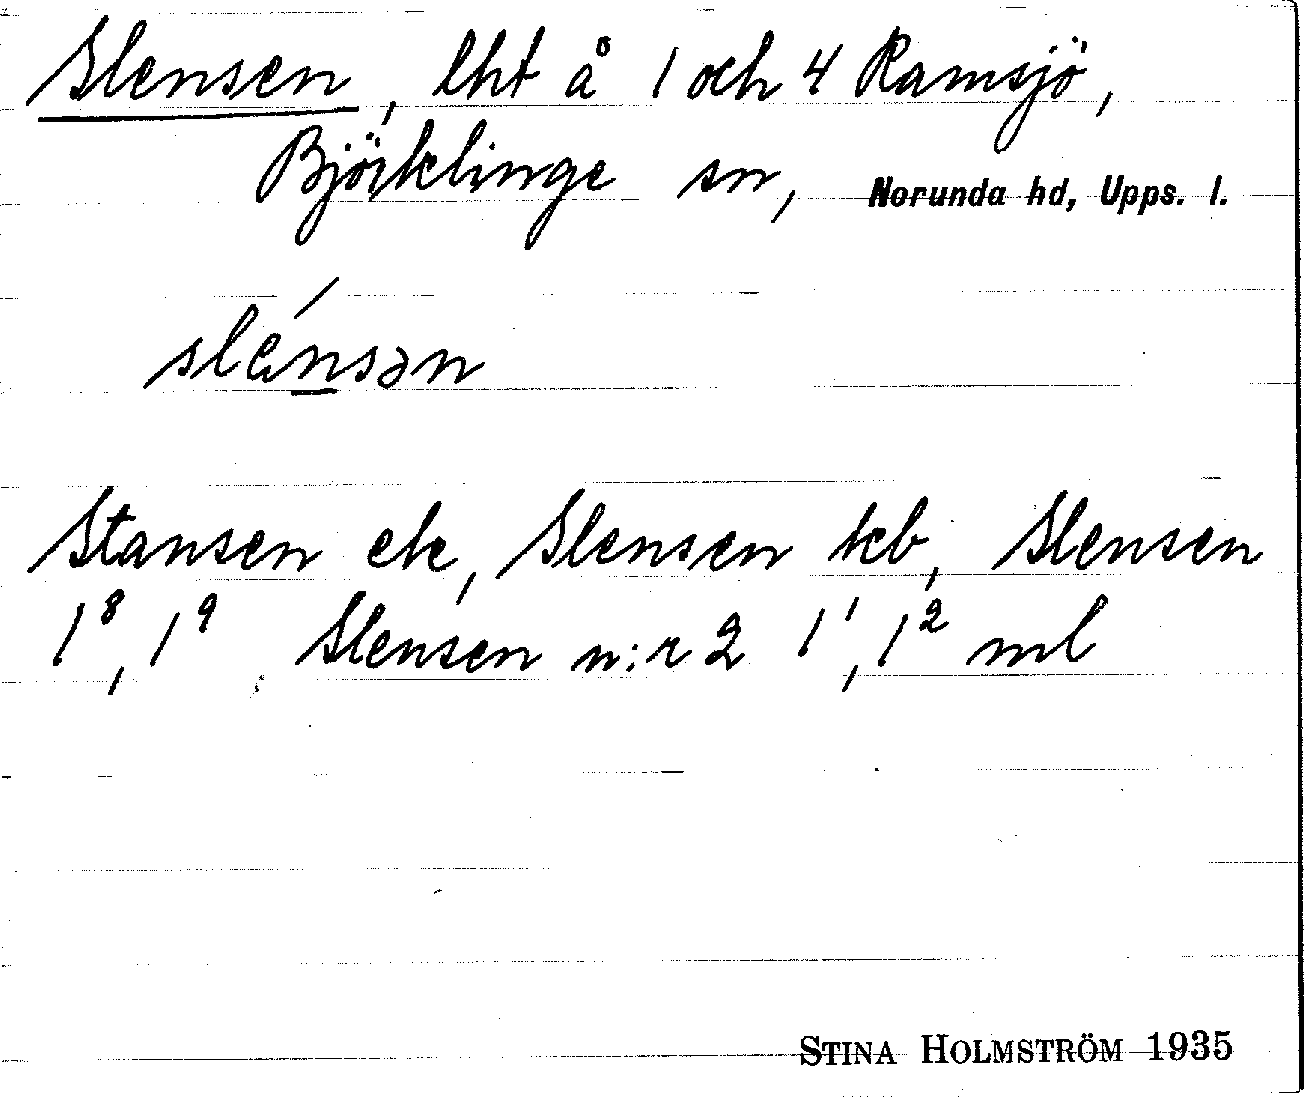 Slensen, lht å 1 och 4 Ramsjö,
Björklinge sn, Norunda hd, Upps. l.
slénsən
Stansen ek, Slensen kb, Slensen
1⁸, 1⁹, Slensen n:r 2 1¹, 1² ml
STINA HOLMSTRÖM 1935